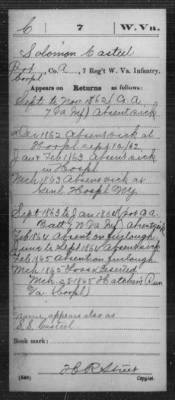 C 7 W. Va.
Solomon Casteel
Pvt., Co. A, 7 Reg't W. Va. Infantry.
Corpl
Appears on Returns as follows:
Sept to Nov 1862 Co. A.
7 Va Inf) Absent sick
Dec 1862 Absent sick at
Hospl Sept 10/62.
Jan & Feb 1863 Absent sick
in Hospl
Mch 1863 Absent sick in
Genl Hospl Md
Sept 1863 to Jan 1864 (Co A
Batt 7 W Va Inf) Absent sick
Feb 1864 Absent on furlough
June to Sept 1864 Absent sick
Feb 1865 Absent on furlough
Mch 1865 Loss
Mch 25 1865 Hatchers Run
Va (Corpl)
Name appears also as
S. S. Casteel
Book mark:
H R Street
(546) Copyist.